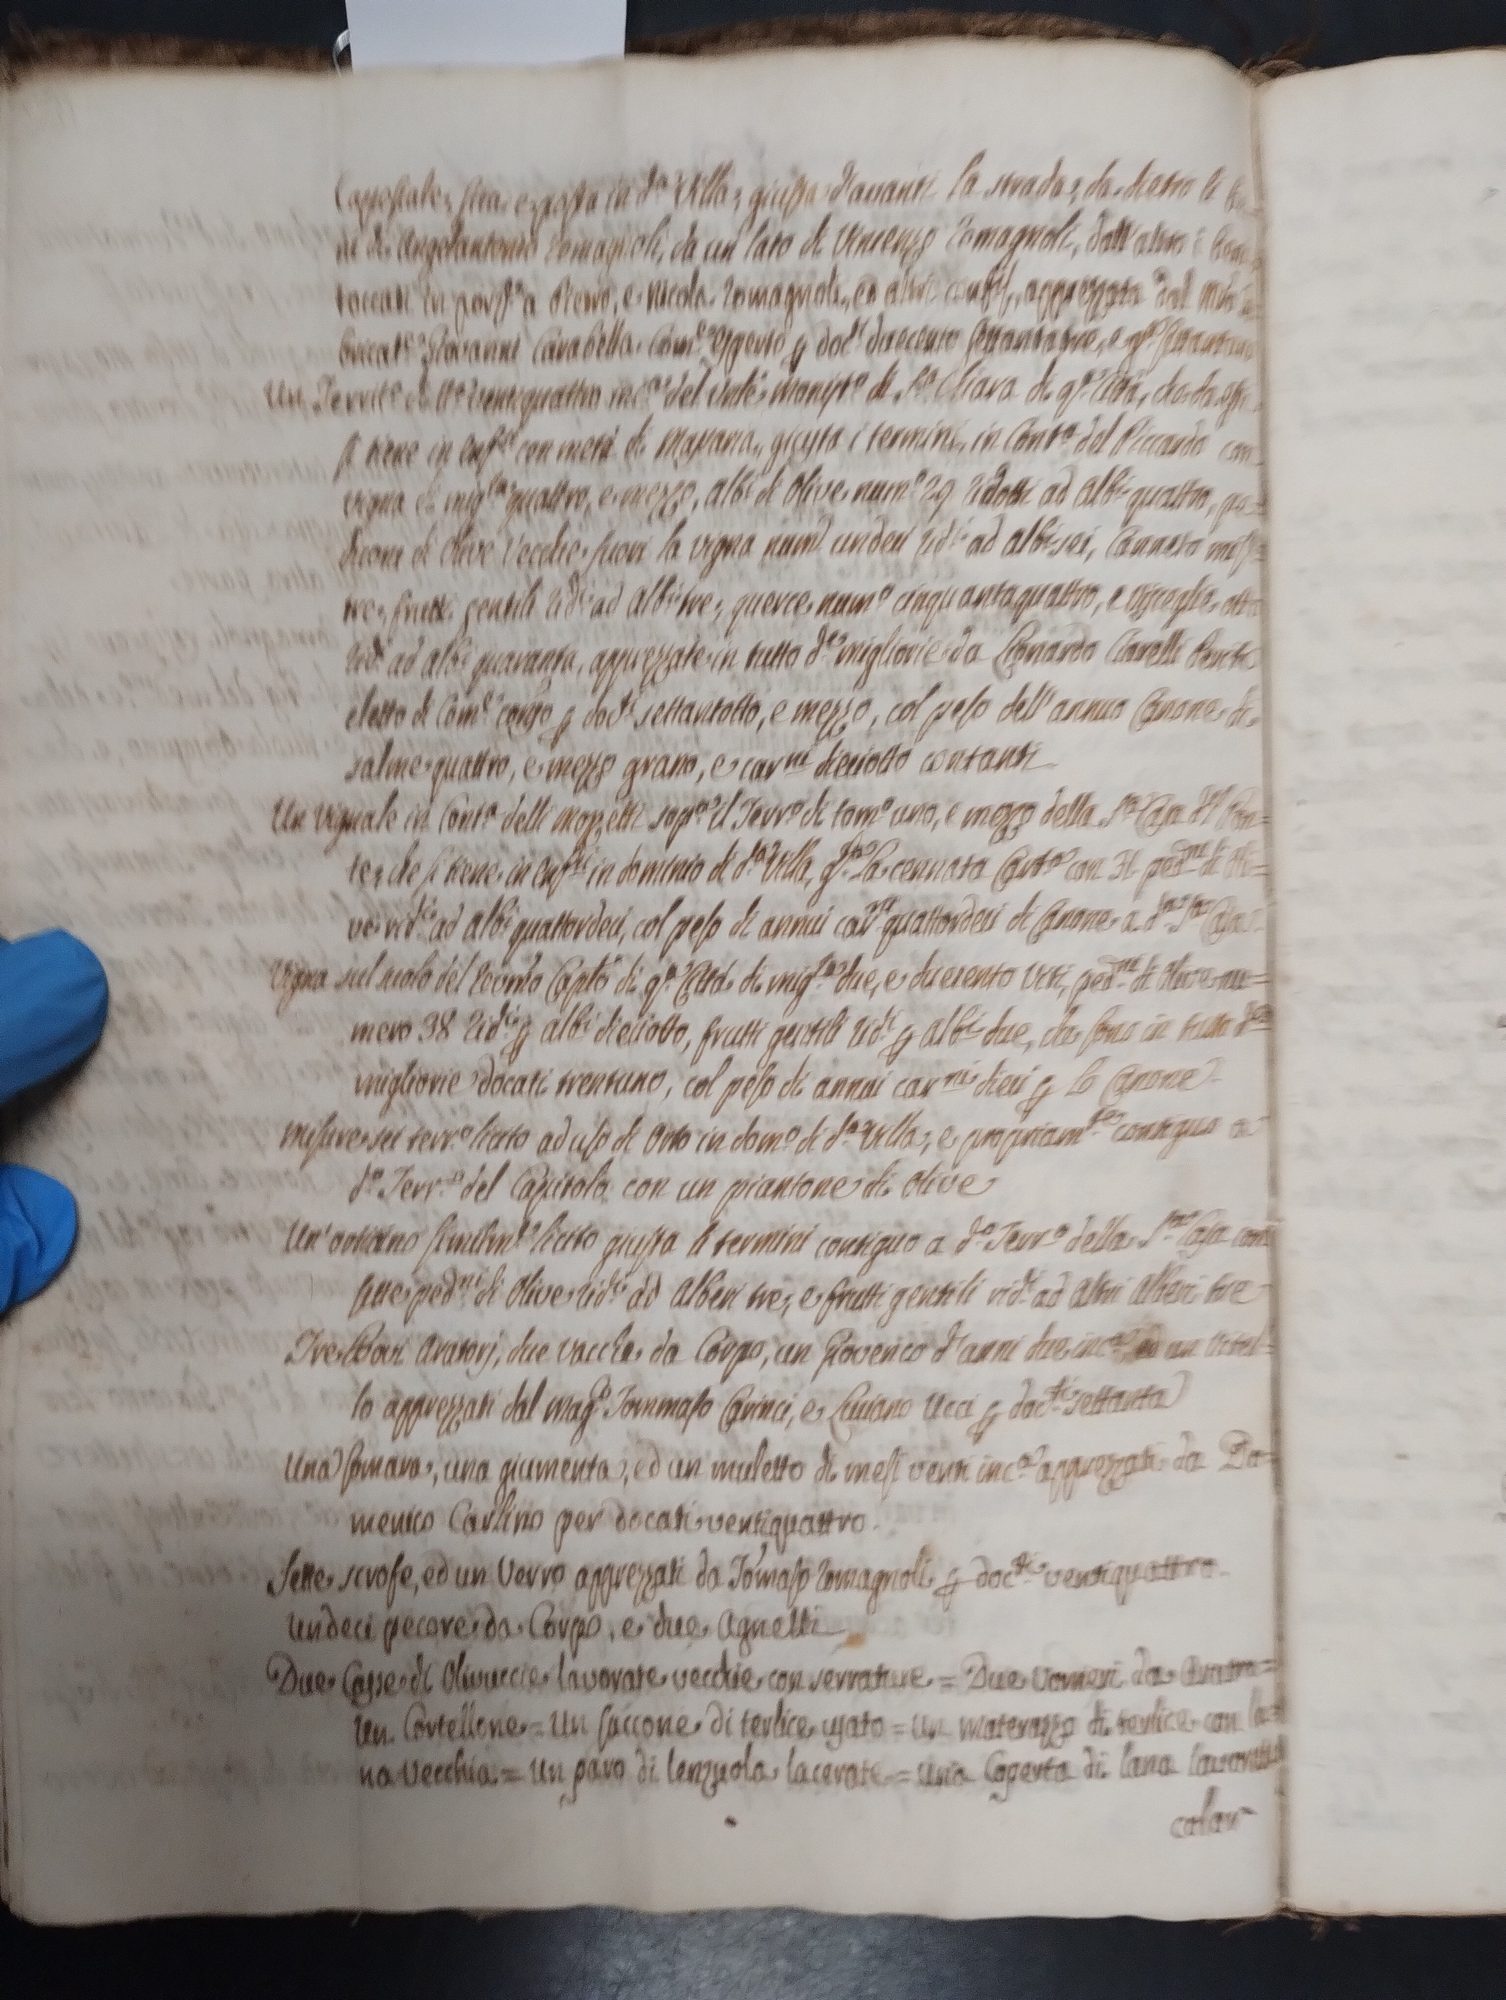 sita, e posta in d.ª Villa, giusta d'avanti la strada, da dietro li
ni di Angelantonio Romagnoli, da un lato di Vincenzo Romagnoli, dall'altro i beni
toccati in porz.e a Pietro, e Nicola Romagnoli, ed altri conf.i, apprezzata dal
Giovanni Carabella Com.e Esperto p doc.ti duecento settantatre, e
Un Territ.o di t.a ventiquattro inc.a del Ven.e Monist.o di S.ta Chiara di q.ta Città, che da esso
si tiene in enf.si con metà di Massaria, giusta i termini, in Cont.a del Piccardo con
vigna di mig.ra quattro, e mezzo, albi di Olive num.o 29 ridotti ad albi quattro, pe=
dicini di Olive vecchie fuori la vigna num.o undeci rid.i ad albi sei, Canneto misu=
re, frutti gentili rid.i ad albi tre, querce num.o cinquantaquattro, e visceglie otto
rid.i ad albi quaranta, apprezzate in tutto d.e migliorie da Leonardo Ciavelli Perito
eletto di Com.e conso p doc.ti settantotto, e mezzo, col peso dell'annuo Canone di
salme quattro, e mezzo grano, e car.ni dieciotto contanti
Un Vignale in Cont.a delli Mozzetti sop.a il Terr.o di tom.o uno, e mezzo della S.ta Casa del Pon=
te, che si tiene in enf.si in dominio di d.ª Villa, g.sta la cennata Cart.a con 31 ped.ni di Oli=
ve rid.i ad albi quattordeci, col peso di annui car.ni quattordeci di Canone a d.ª S.ta Casa
Vigna sul suolo del Rev.mo Cap.lo di q.ta Città di mig.ra due, e duecento viti, ped.ni di Olive nu=
mero 38 rid.i p albi dieciotto, frutti gentili rid.i p albi due, che sono in tutto d.e
migliorie docati trentuno, col peso di annui car.ni dieci p lo Canone
Misure sei terr.o sicito ad uso di Orto in dom.o di d.ª Villa, e propriam.te contiguo a
d.o Terr.o del Capitolo con un piantone di Olive
Un'orticino similm.e sicito giusta li termini contiguo a d.o Terr.o della S.ta Casa con
sette ped.ni di Olive rid.i ad alberi tre, e frutti gentili rid.i ad altri alberi tre
Tre Bovi Aratorj, due vacche da Corpo, un Giovenco d'anni due inc.a, ed un vitel=
lo apprezzati dal Mag.o Tommaso Carinci, e Luciano Ucci p doc.ti settanta
Una Somara, una giumenta, ed un muletto di mesi venti inc.a apprezzati da Do=
menico Carlino per docati ventiquattro.
Sette scrofe, ed un Verro apprezzati da Tomaso Romagnoli p doc.ti ventiquattro.
Undeci pecore da Corpo, e due Agnelli
Due Casse di Olivuccie lavorate vecchie con serrature = Due Vomeri da Aratro=
Un Cortellone = Un saccone di terlice usato = Un materazzo di terlice con la=
na vecchia = Un paro di lenzuola lacerate = Una Coperta di lana lavorata